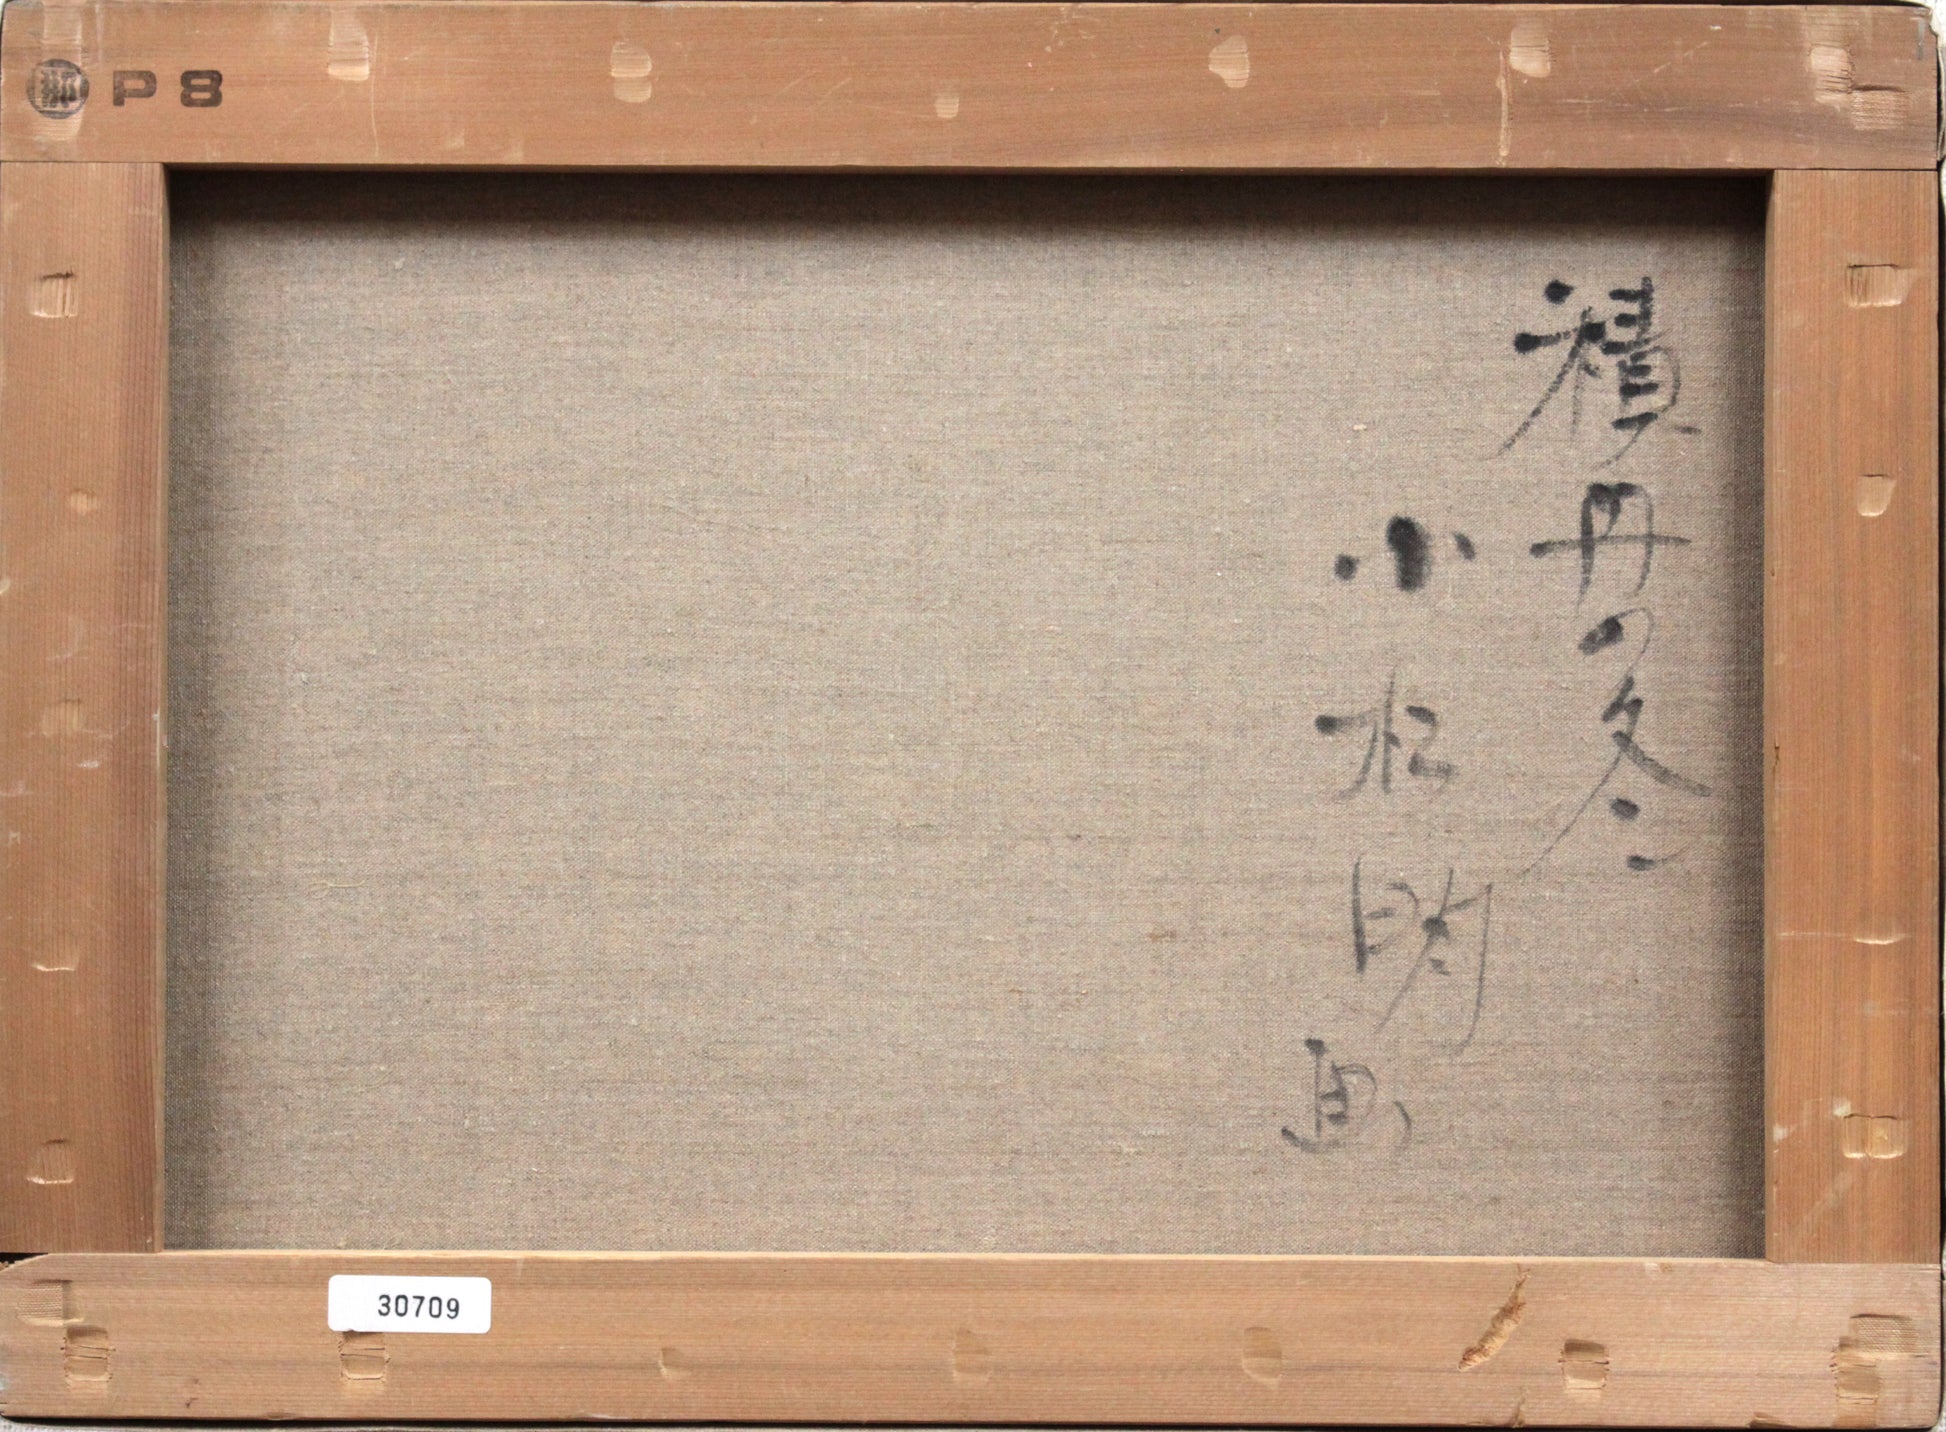 那 P8
積丹の冬
小松明画
30709